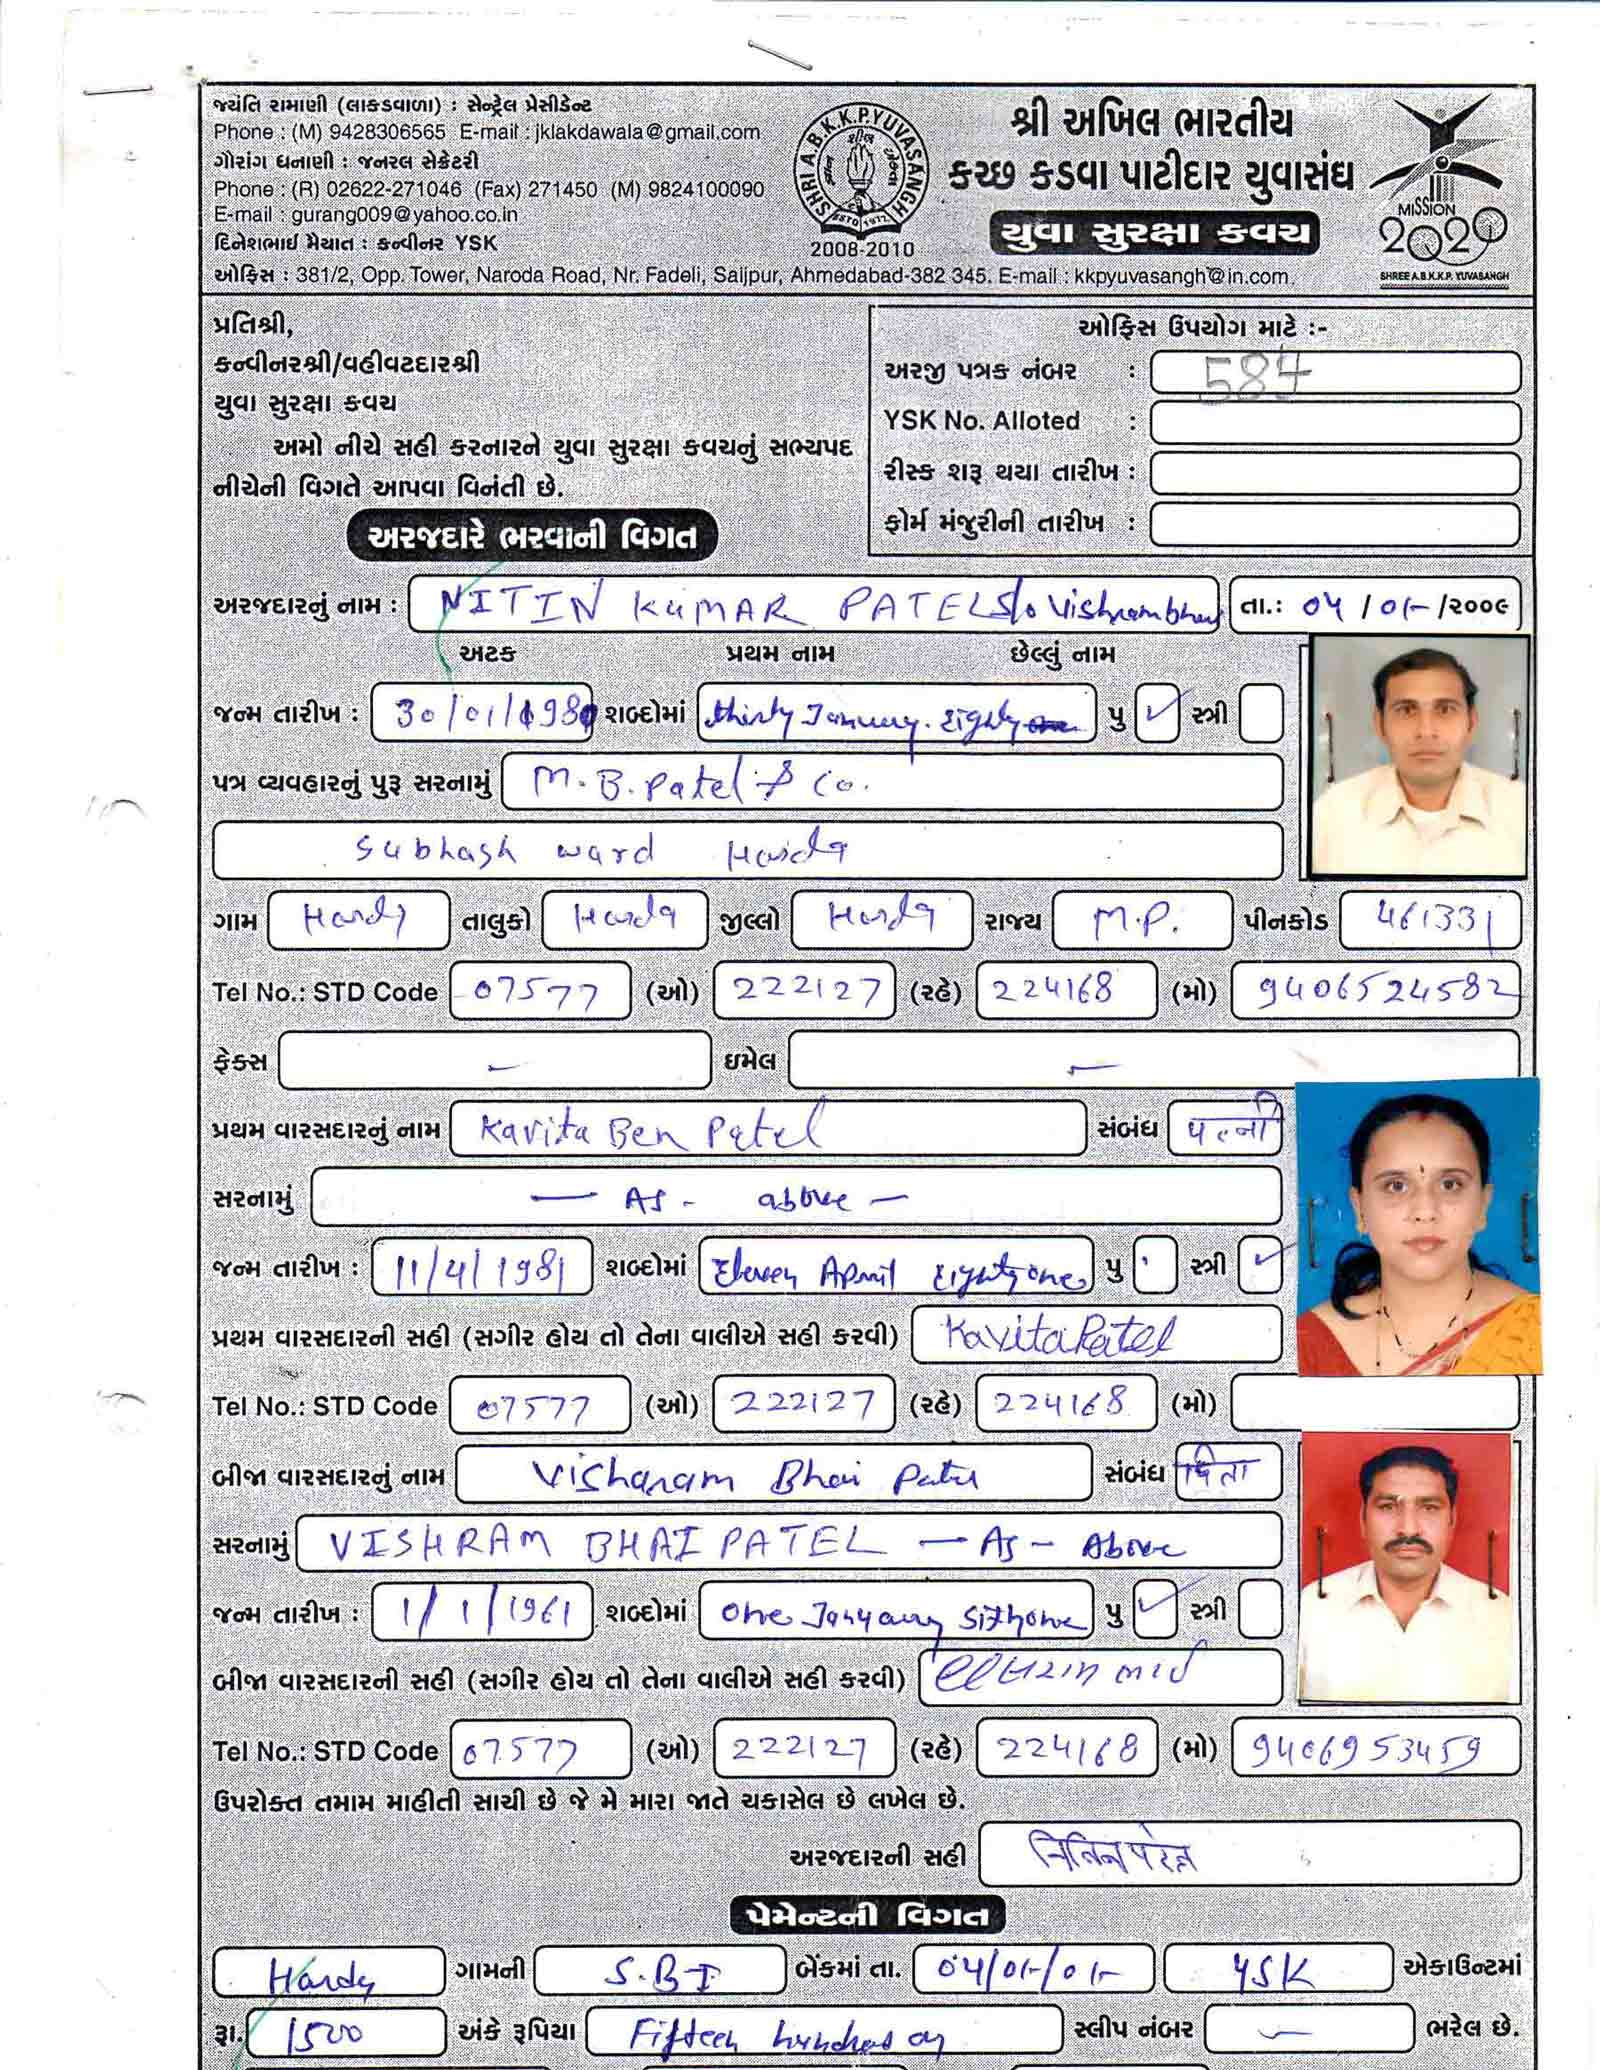 જયંતિ રામાણી (લાકડવાળા) : સેન્ટ્રેલ પ્રેસીડેન્ટ
Phone : (M) 9428306565 E-mail : jklakdawala@gmail.com
ગૌરાંગ ધનાણી : જનરલ સેક્રેટરી
Phone : (R) 02622-271046 (Fax) 271450 (M) 9824100090
E-mail : gurang009@yahoo.co.in
દિનેશભાઈ મૈયાત : કન્વીનર YSK
SHRI A.B.K.K.P. YUVASANGH
ESTD 1977
2008-2010
શ્રી અખિલ ભારતીય
કચ્છ કડવા પાટીદાર યુવાસંઘ
યુવા સુરક્ષા કવચ
MISSION
2020
SHREE A.B.K.K.P. YUVASANGH
ઓફિસ : 381/2, Opp. Tower, Naroda Road, Nr. Fadeli, Saijpur, Ahmedabad-382 345. E-mail : kkpyuvasangh@in.com.
પ્રતિશ્રી,
કન્વીનરશ્રી/વહીવટદારશ્રી
યુવા સુરક્ષા કવચ
અમો નીચે સહી કરનારને યુવા સુરક્ષા કવચનું સભ્યપદ
નીચેની વિગતે આપવા વિનંતી છે.
ઓફિસ ઉપયોગ માટે :-
અરજી પત્રક નંબર : 584
YSK No. Alloted :
રીસ્ક શરૂ થયા તારીખ :
ફોર્મ મંજુરીની તારીખ :
અરજદારે ભરવાની વિગત
અરજદારનું નામ : NITIN KUMAR PATEL S/o Vishrambhai તા.: 04 / 01 /૨૦૦૯
અટક પ્રથમ નામ છેલ્લું નામ
જન્મ તારીખ : 30/01/1980 શબ્દોમાં thirty January. Eighty પુ ✓ સ્ત્રી
પત્ર વ્યવહારનું પુરૂ સરનામું M. B. Patel & Co.
Subhash ward Harda
ગામ Harda તાલુકો Harda જીલ્લો Harda રાજ્ય M.P. પીનકોડ 461331
Tel No.: STD Code 07577 (ઓ) 222127 (રહે) 224168 (મો) 9406524582
ફેક્સ - ઇમેલ -
પ્રથમ વારસદારનું નામ Kavita Ben Patel સંબંધ पत्नी
સરનામું — As - above —
જન્મ તારીખ : 11/4/1981 શબ્દોમાં Eleven April Eighty one પુ સ્ત્રી ✓
પ્રથમ વારસદારની સહી (સગીર હોય તો તેના વાલીએ સહી કરવી) Kavita Patel
Tel No.: STD Code 07577 (ઓ) 222127 (રહે) 224168 (મો)
બીજા વારસદારનું નામ Visharam Bhai Patel સંબંધ पिता
સરનામું VISHRAM BHAI PATEL — As - Above
જન્મ તારીખ : 1/1/1961 શબ્દોમાં one January Sixtyone પુ ✓ સ્ત્રી
બીજા વારસદારની સહી (સગીર હોય તો તેના વાલીએ સહી કરવી)
Tel No.: STD Code 07577 (ઓ) 222127 (રહે) 224168 (મો) 9406953459
ઉપરોક્ત તમામ માહીતી સાચી છે જે મે મારા જાતે ચકાસેલ છે લખેલ છે.
અરજદારની સહી नितिन पटेल
પેમેન્ટની વિગત
Harda ગામની S.B.I બેંકમાં તા. 04/01/01 YSK એકાઉન્ટમાં
રૂા. 1500 અંકે રૂપિયા Fifteen hundred સ્લીપ નંબર - ભરેલ છે.